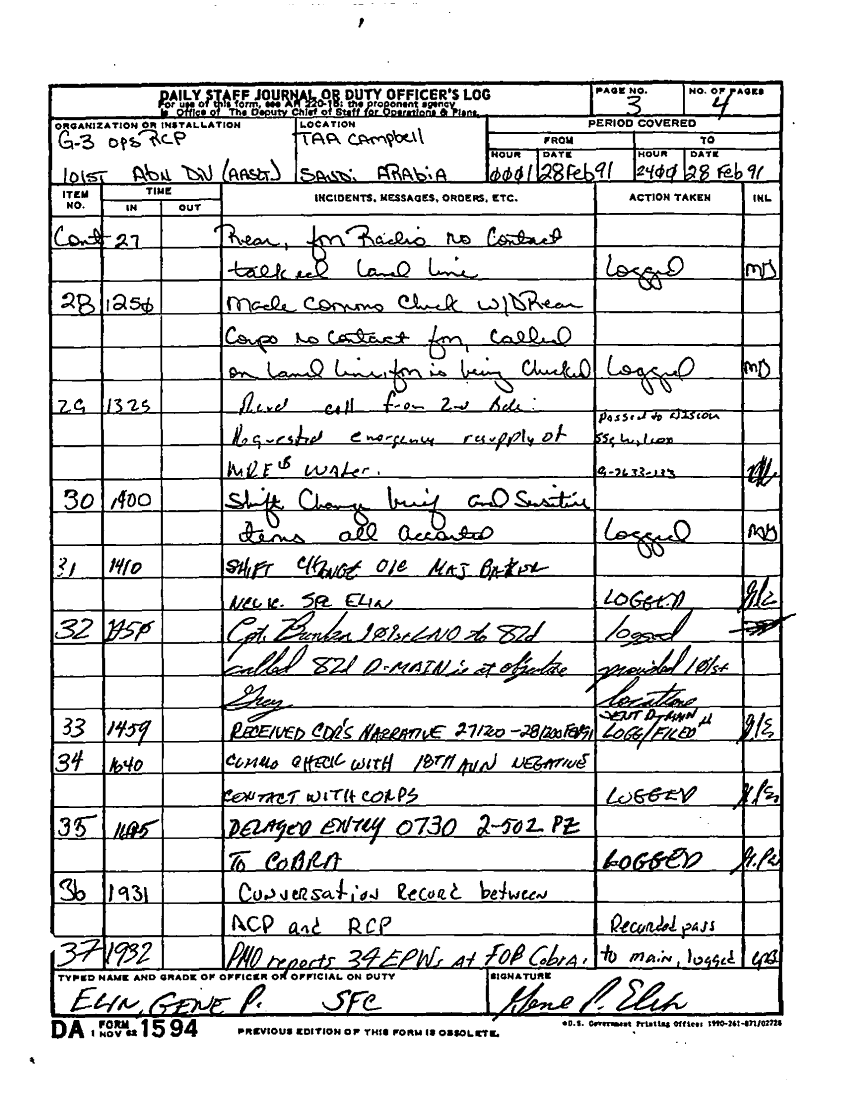 DAILY STAFF JOURNAL OR DUTY OFFICER'S LOG
For use of this form, see AR 220-15; the proponent agency
is Office of The Deputy Chief of Staff for Operations & Plans.
PAGE NO.
3
NO. OF PAGES
4
ORGANIZATION OR INSTALLATION
G-3 OPS RCP
101ST ABN DIV (AASLT)
LOCATION
TAA Campbell
SAUDI ARABIA
PERIOD COVERED
FROM
TO
HOUR
DATE
HOUR
DATE
0001
28 Feb 91
2400
28 Feb 91
ITEM NO.
TIME
IN
OUT
INCIDENTS, MESSAGES, ORDERS, ETC.
ACTION TAKEN
INL
Cont 27 Rear, fm Radio no Contact
talked land line Logged
28 1250 Made Commo Check w/DRear
Corps no contact fm, called
on land line, fm is being Checked Logged
29 1325 Recvd call from 2nd Bde:
Requested emergency resupply of Passed to
MRE's Water. G-2633-133
30 1400 Shift Change brief and Sensitive
items all accounted Logged
31 1410 SHIFT CHANGE OIC MAJ BAKER
SFC ELIN LOGGED
32 1450 Cpt. 101st LNO to 82d logged
called 82d D-MAIN is at objective provided 101st
Gray locations
33 1459 RECEIVED CDR'S NARRATIVE 271200-281200FEB91 SENT D-MAIN
LOGG/FILED
34 1640 COMMO CHECK WITH 18TH AVN NEGATIVE
CONTACT WITH CORPS LOGGED
35 DELAYED ENTRY 0730 2-502 PZ
TO COBRA LOGGED
36 1931 Conversation Record between
ACP and RCP Recorded pass
37 1932 PMO reports 34 EPWs at FOB Cobra. to main, logged
TYPED NAME AND GRADE OF OFFICER OR OFFICIAL ON DUTY
ELIN, GENE P. SFC
SIGNATURE
Gene P. Elin
DA FORM 1 NOV 62 1594
PREVIOUS EDITION OF THIS FORM IS OBSOLETE.
U.S. Government Printing Office: 1990-261-871/02728